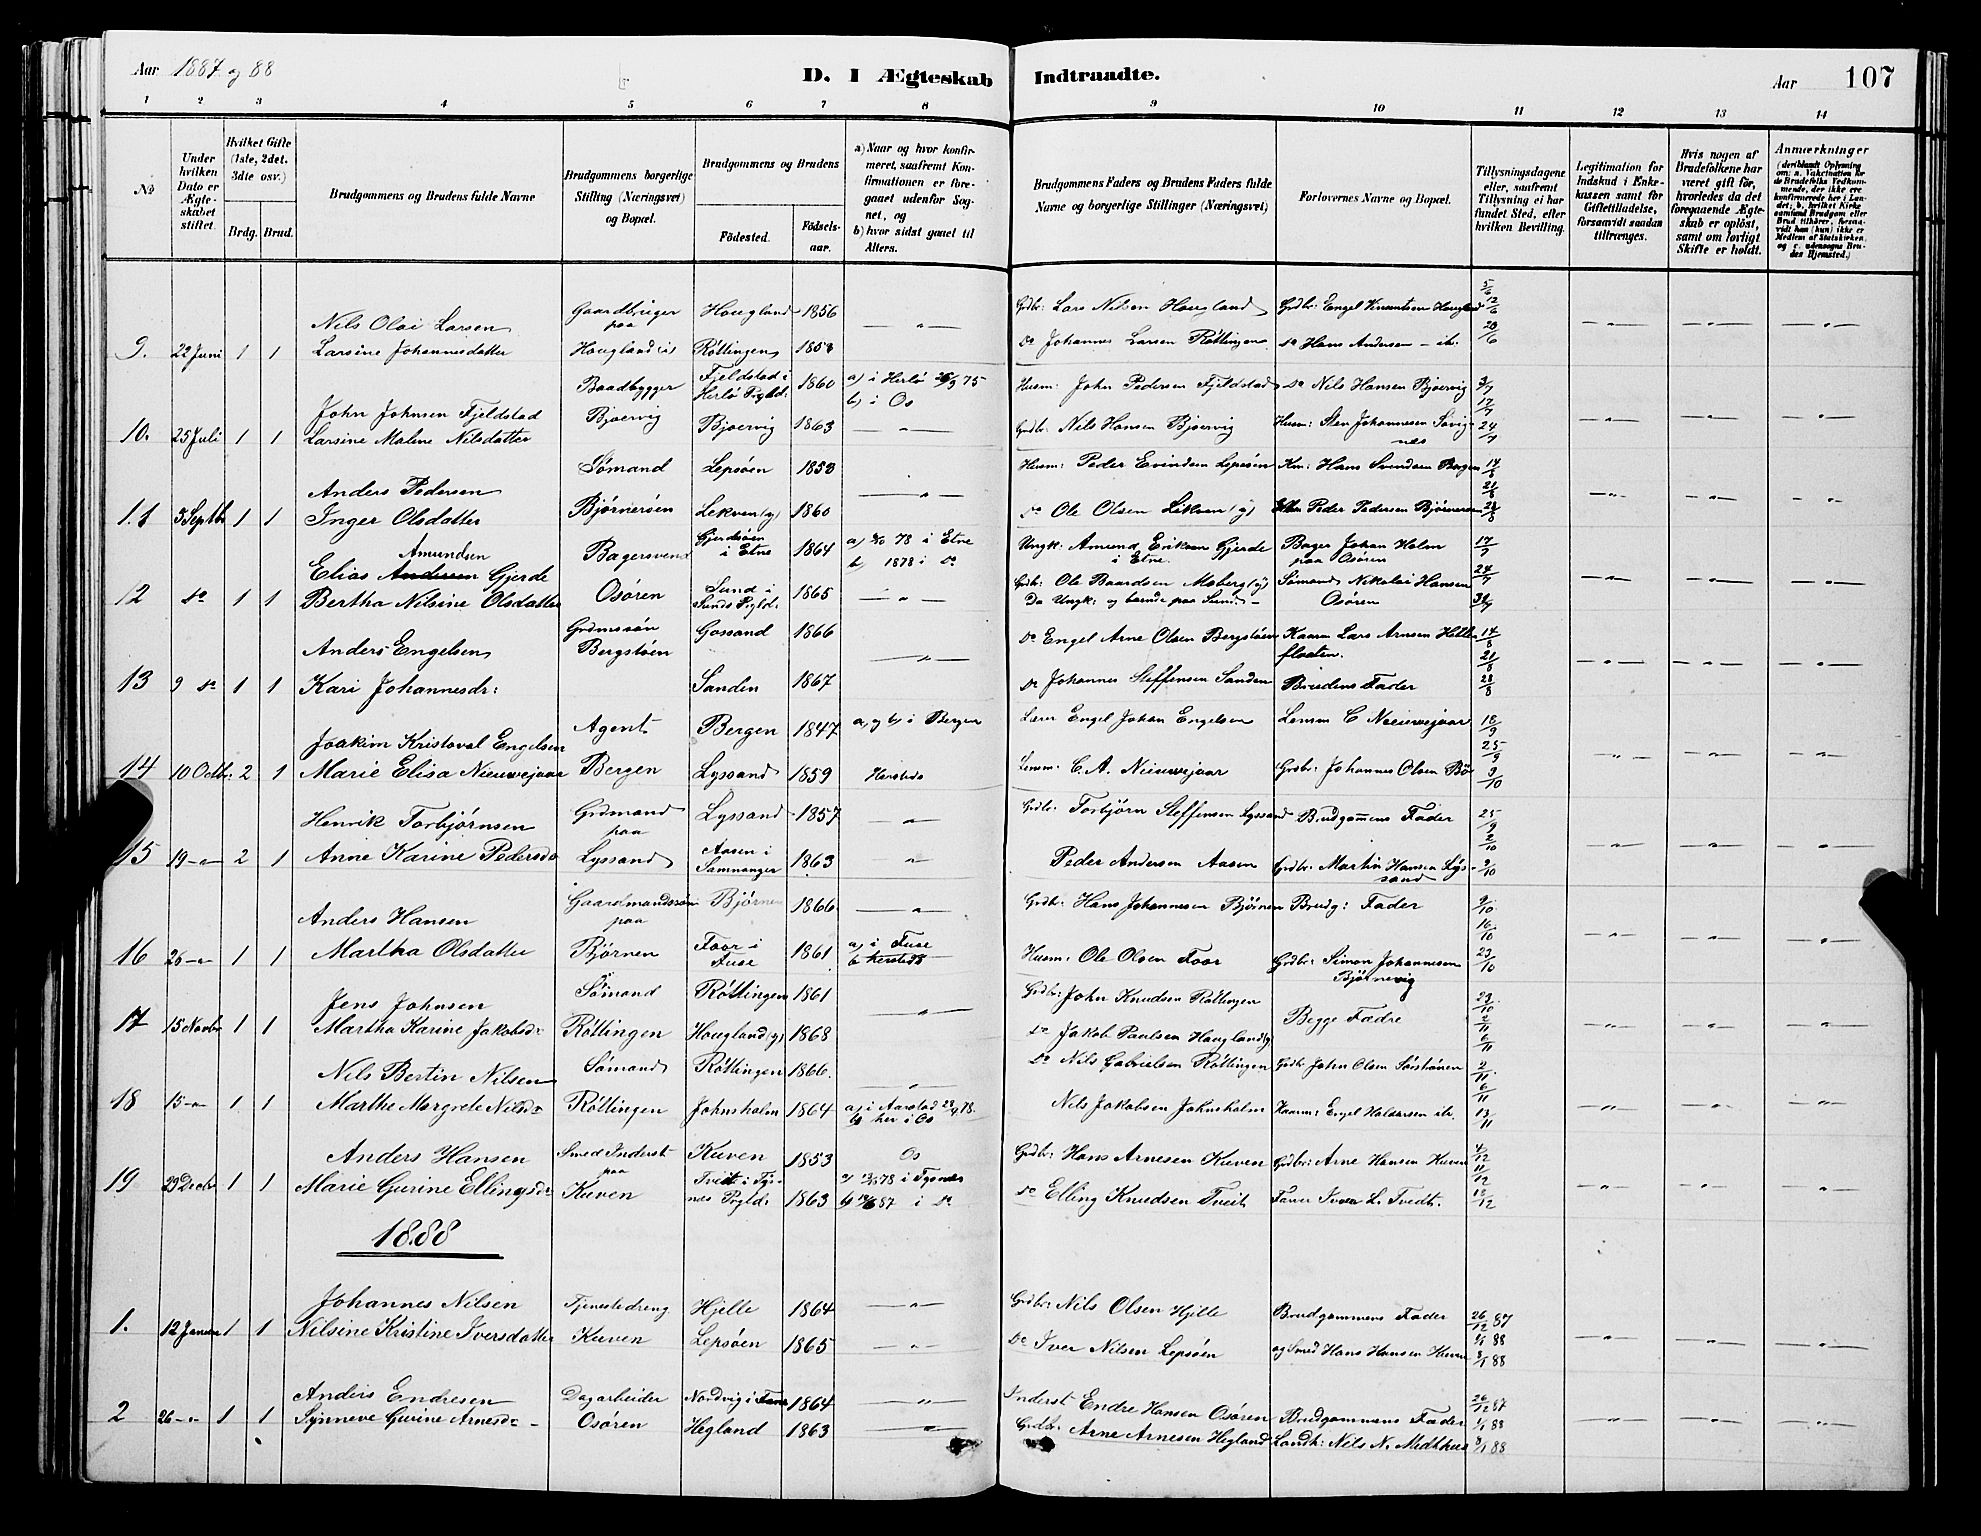 Aar 1887 og 88
D. I Ægteskab Indtraadte.
Aar 107
1 2 3 4 5 6 7 8 9 10 11 12 13 14
No
Under hvilken Dato er Ægteskabet stiftet.
Hvilket Gifte (1ste, 2det. 3die osv.)
Brdg. Brud.
Brudgommens og Brudens fulde Navne
Brudgommens borgerlige Stilling (Næringsvei) og Bopæl.
Brudgommens og Brudens
Fødested. Fødsels-aar.
a) Naar og hvor konfirmeret, saafremt Konfirmationen er foregaaet udenfor Sognet, og
b) hvor sidst gaaet til Alters.
Brudgommens Faders og Brudens Faders fulde Navne og borgerlige Stillinger (Næringsvei)
Forlovernes Navne og Bopæl.
Tillysningsdagene eller, saafremt Tillysning ei har fundet Sted, efter hvilken Bevilling.
Legitimation for Indskud i Enkekassen samt for Giftetilladelse, forsaavidt saadan tiltrænges.
Hvis nogen af Brudefolkene har været gift før, hvorledes da det foregaaende Ægteskab er opløst, samt om lovligt Skifte er holdt.
Anmærkninger
Nils Olai Larsen Gaardbruger paa Hougland 1856 — " — Grdbr: Lars Nilsen Hougland Grdbr: Engel Knudtsen Hougland 5/6 12/6
9. 22 Juni 1 1 Larsine Johannesdatter Hougland Røttingen 1858 do Johannes Larsen Røttingen do Hans Andersen — ib. 20/6 — " — — " — — " —
John Johnsen Fjeldstad Baadbygger Fjeldstad i Herlø Pgld: 1860 a) i Herlø 26/9 75 b) i Os Husm: John Pedersen Fjeldstad do Nils Hansen Bjoervig 3/7 17/7
10. 25 Juli 1 1 Larsine Malene Nilsdatter Bjoervig Bjoervig 1863 — " — Grdbr: Nils Hansen Bjoervig Husm: Sten Johannesen Søvignes 24/7 — " — — " — — " —
Anders Pedersen Sømand Lepsøen 1858 — " — Husm: Peder Evindsen Lepsøen Km: Hans Svendsen Bergen 14/8 21/8
11 3 Septbr 1 1 Inger Olsdatter Bjørnersen Lekven (y) 1860 do Ole Olsen Lekven (y) Peder Pedersen 28/8 — " — — " — — " —
Amundsen
Elias Andersen Gjerde Bagersvend Gjerdsøen i Etne 1864 a) 78 i Etne b) 1878 i do Ungk: Amund Eriksen Gjerde i Etne Bager Johan Holm paa Osøren 17/7 24/7
12 do 1 1 Bertha Nilsine Olsdatter Osøren Sund i Sunds Pgld: 1865 — " — Grdbr: Ole Baardsen Moberg (y) Da Ungk: og boende paa Sund. — Sømand Nikolai Hansen Osøren 31/7 — " — — " — — " —
Anders Engelsen Grdmssøn Bergstøen Gossand 1866 — " — do Engel Arne Olsen Bergstøen Kaarm Lars Arnesen Hellefloeten. 14/8 21/8
13 9 do 1 1 Kari Johannesdr: Sanden 1867 do Johannes Steffensen Sanden Brudens Fader 28/8 — " — — " — — " —
Joakim Kristoval Engelsen Agent Bergen 1847 a) og b) i Bergen Lærer Engel Johan Engelsen Lensm C Nieuwejaar 18/9 25/9
14 10 Octbr. 2 1 Marie Elisa Nieuwejaar Bergen Lyssand 1859 Hersteds Lensm: C. A. Nieuwejaar Grdbr: Johannes Olsen Bø 3/10 — " — — " — — " —
Henrik Torbjørnsen Grdmand paa Lyssand 1857 — " — Grdbr: Torbjørn Steffensen Lyssand Brudgomens Fader 25/9 2/10
15 19 — " — 2 1 Anne Karine Pedersdr Lyssand Aasen i Samnanger 1863 " Peder Andersen Aasen Grdbr: Martin Hansen Lyssand 9/10 — " — — " — — " —
Anders Hansen Gaardmandssøn paa Bjørnen 1866 — " — Grdbr: Hans Johannesen Bjørnen Brudg: Fader 9/10 16/10
16 26 — " — 1 1 Martha Olsdatter Bjørnen Foor i Fuse 1861 a) i Fuse b) hersteds Husm: Ole Olsen Foor Grdbr: Simon Johannesen Bjørnevig 23/10 — " — — " — — " —
Jens Johnsen Sømand Røttingen 1861 — " — Grdbr: John Knudsen Røttingen Begge Fædre 23/10 2/11
17 15 Novbr 1 1 Martha Karine Jakobsdr Røttingen Hougland (y) 1868 do Jakob Paulsen Hougland (y) 6/11 — " — — " — — " —
Nils Bertin Nilsen Sømand Røttingen 1866. — " — do Nils Gabrielsen Røttingen Grdbr John Olsen Sørstrønen 2/11 6/11
18 15 — " — 1 1 Marthe Margrete Nilsdr Røttingen Johnsholm 1864 a) i Aarstad 28/9 78. b) her i Os Nils Jakobsen Johnsholm Kaarm: Engel Halvorsen ib. 13/11 — " — — " — — " —
Anders Hansen Smed Inderst paa Kuven 1853 Os Grdbr: Hans Arnesen Kuven Grdbr: Arne Hansen Kuven 4/12 11/12
19 29 Decbr 1 1 Marie Gurine Ellingsdr Kuven Tveit i Tysnes Pgld: 1863 78 i Tysnes 87 i do do Elling Knudsen Tveit Farver Iver L. Tvedt. 18/12 — " — — " — — " —
1888
Johannes Nilsen Tjenestedreng Hjelle 1864 — " — Grdbr: Nils Olsen Hjelle Brudgommens Fader 26/12 87
1. 12 Januar 1 1 Nilsine Kristine Iversdatter Kuven Lepsøen 1865 — " — do Iver Nilsen Lepsøen og Smed Hans Hansen Kuven 1/1 88 8/1 88 — " — — " — — " —
Anders Endresen Dagarbeider Nordvig i Fane 1864 — " — Inderst Endre Hansen Osøren Brudgommens Fader 26/12 87 1/1 88
2 26 — " — 1 1 Synneve Gurine Arnesdr — Osøren Hegland 1863 — " — Grdbr. Arne Arnesen Hegland Landh: Nils N. Midthus 8/1 88 — " — — " — — " —